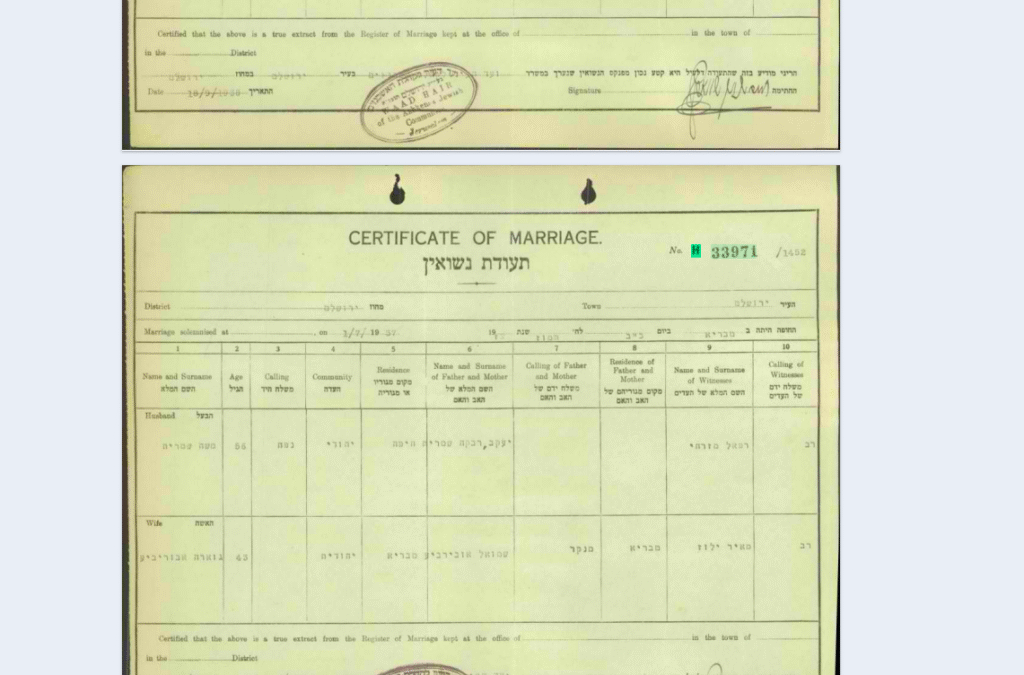 Certified that the above is a true extract from the Register of Marriage kept at the office of in the town of
in the District
הריני מודיע בזה שהתעודה דלעיל היא קטע נכון מפנקס הנשואין שנערך במשרד בעיר ירושלם במחוז ירושלם
Date 18/9/1938 התאריך Signature החתימה
RAAD HAIR
of the Ashkenazi Jewish
Community
Jerusalem
CERTIFICATE OF MARRIAGE.
No. H 33971 /1492
תעודת נשואין
District ירושלם מחוז Town ירושלם העיר
Marriage solemnised at on 1/7/19 37 19 שנת תמוז לח' כ"ב ביום טבריא החופה היתה ב
1 2 3 4 5 6 7 8 9 10
Name and Surname Age Calling Community Residence Name and Surname of Father and Mother Calling of Father and Mother Residence of Father and Mother Name and Surname of Witnesses Calling of Witnesses
השם המלא הגיל משלח היד העדה מקום מגוריו או מגוריה השם המלא של האב והאם משלח ידם של האב והאם מקום מגוריהם של האב והאם השם המלא של העדים משלח ידם של העדים
Husband הבעל
משה שמריה 56 נהה יהודי חיפה יעקב,רבקה שמריה רפאל מזרחי רב
Wife האשה
43 יהודיה טבריא שמואל מנקר טבריא מאיר ילוז רב
Certified that the above is a true extract from the Register of Marriage kept at the office of in the town of
in the District